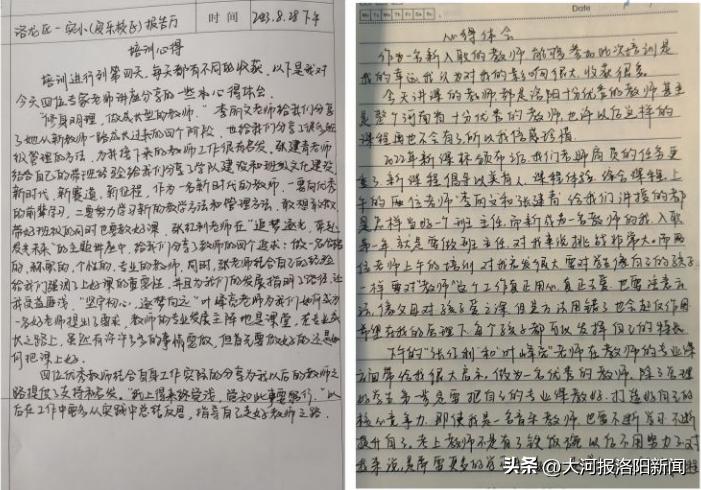 洛龙区一实小(安乐校区)报告厅 时间 2023.8.28下午
培训心得
培训进行到第四天,每天都有不同的收获,以下是我对
今天四位专家老师讲座分享的一些心得体会。
"修身明理,做成长型的教师。"李丽文老师给我们分享
了她从新教师一路成长过来的四个阶段,也给我们分享了
级管理的方法,为我接下来的教师工作很有启发。张建青老师
结合自己的带班经验给我们分享了学风建设和班级文化建设,
新时代,新赛道,新征程,作为一名新时代的教师,一要向优秀
的前辈学习,二要努力学习新的教学方法和管理方法,敢想敢
带好班级的同时也要教好课。张红利老师在"追梦逐光,奔赴
的主题讲座中,给我们分享了教师的四个追求:做一名
的、个性的、专业的教师,同时,张老师结合自己的经验
给我们强调了上好课的重要性,并且为我们的发展指明了路径,让
我受益匪浅。"坚守初心,逐梦向远"叶峰亮老师为我们如何成为
一名好老师提出了要求,教师的专业发展主阵地是课堂,在专业成
长之路上,虽然有许许多多的事情要做,但首先要做好的还是如
何把课上好。
四位优秀教师结合自身工作实际的分享为我以后的教师之
路提供了支持和启发。"纸上得来终觉浅,绝知此事要躬行。"以
后在工作中要多从实践中总结反思,指导自己走好教师之路。
Date
心得体会
作为一名新入职的教师能够参加此次培训是
我的幸运,我认为对我的影响很大,收获很多。
今天讲课的老师都是洛阳十分优秀的教师甚至
是整个河南省十分优秀的教师,也许以后这样的
课程再也不会有了所以我倍感珍惜。
2022年新课标颁布后,我们老师肩负的任务更
重了,新课程倡导以美育人、课程体验、综合课程。上
午的两位老师"李丽文和张建青"给我们讲授的都
是怎样当好一个班主任,而新成为一名教师的我,入职
第一年就是要做班主任,对我来说挑战非常大。而两
位老师上午的培训,对我启发很大要对学生像自己的孩子
一样要对"教师"这个工作真正用心,真正不变,也要注意方
法,像父母对孩子爱之深,但是方法用错了也会起反作用
希望在我的管理下每个孩子都可以发挥自己的特长
下午的"张红利"和"叶峰亮"老师在教师的专业课
方面带给我很大启示,做为一名优秀的教师,除了管理
好学生,第一要务是要把自己的专业课教好。打造好自己的
核心竞争力,即使我是一名音乐教师,也要不断学习,不断
提升自己,考上教师不是有了铁饭碗以后不用努力了,对
我来说,是需要更多的
头条 @大河报洛阳新闻